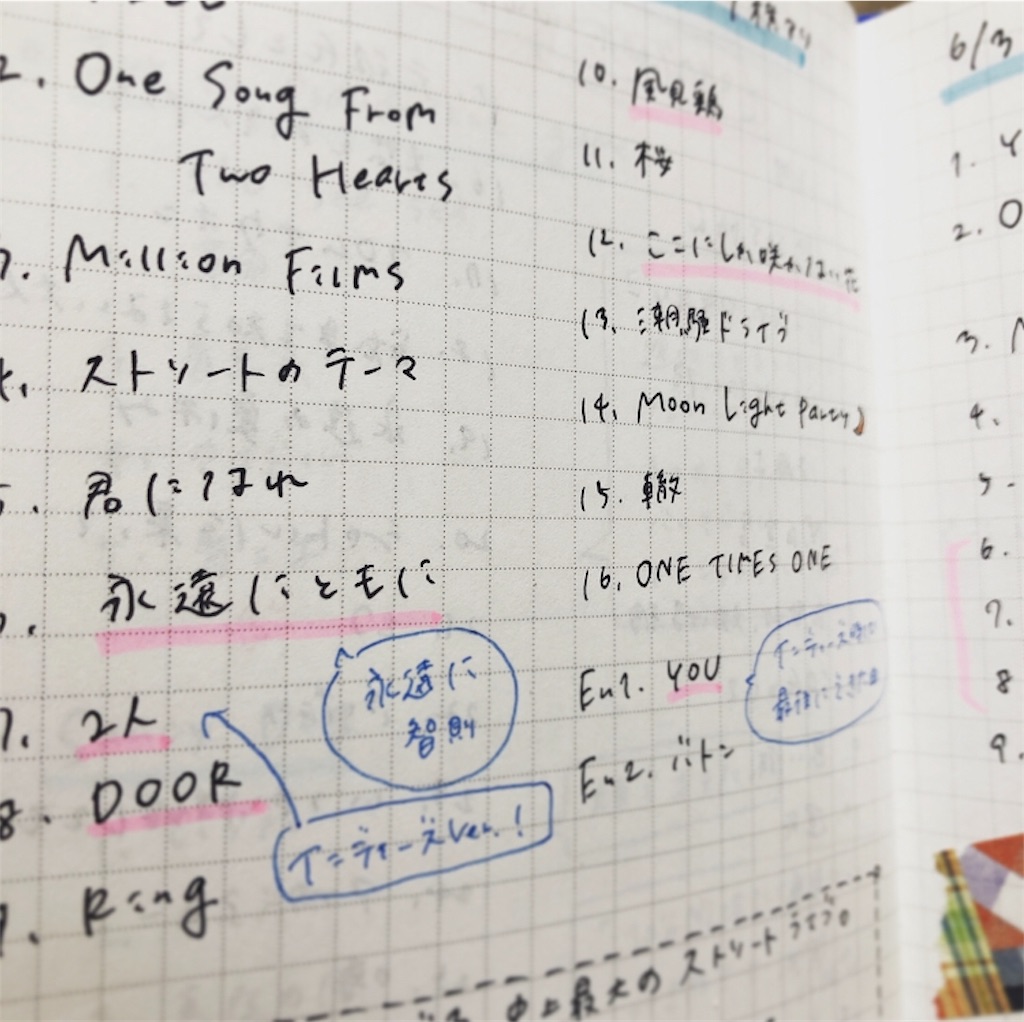 2. One Song From
Two Hearts
3. Million Films
4. ストリートのテーマ
5. 君になれ
6. 永遠にともに
永遠に
智則
7. 2人
8. DOOR
インディーズver.!
9. Ring
10. 風見鶏
11. 桜
12. ここにしか咲かない花
13. 潮騒ドライブ
14. Moon Light Party♪
15. 轍
16. ONE TIMES ONE
En1. YOU
インディーズ時代
最後にできた曲
En2. バトン
史上最大のストリートライブ。
6/3
1. Y
2. O
3. M
4.
5.
6.
7.
8
9.